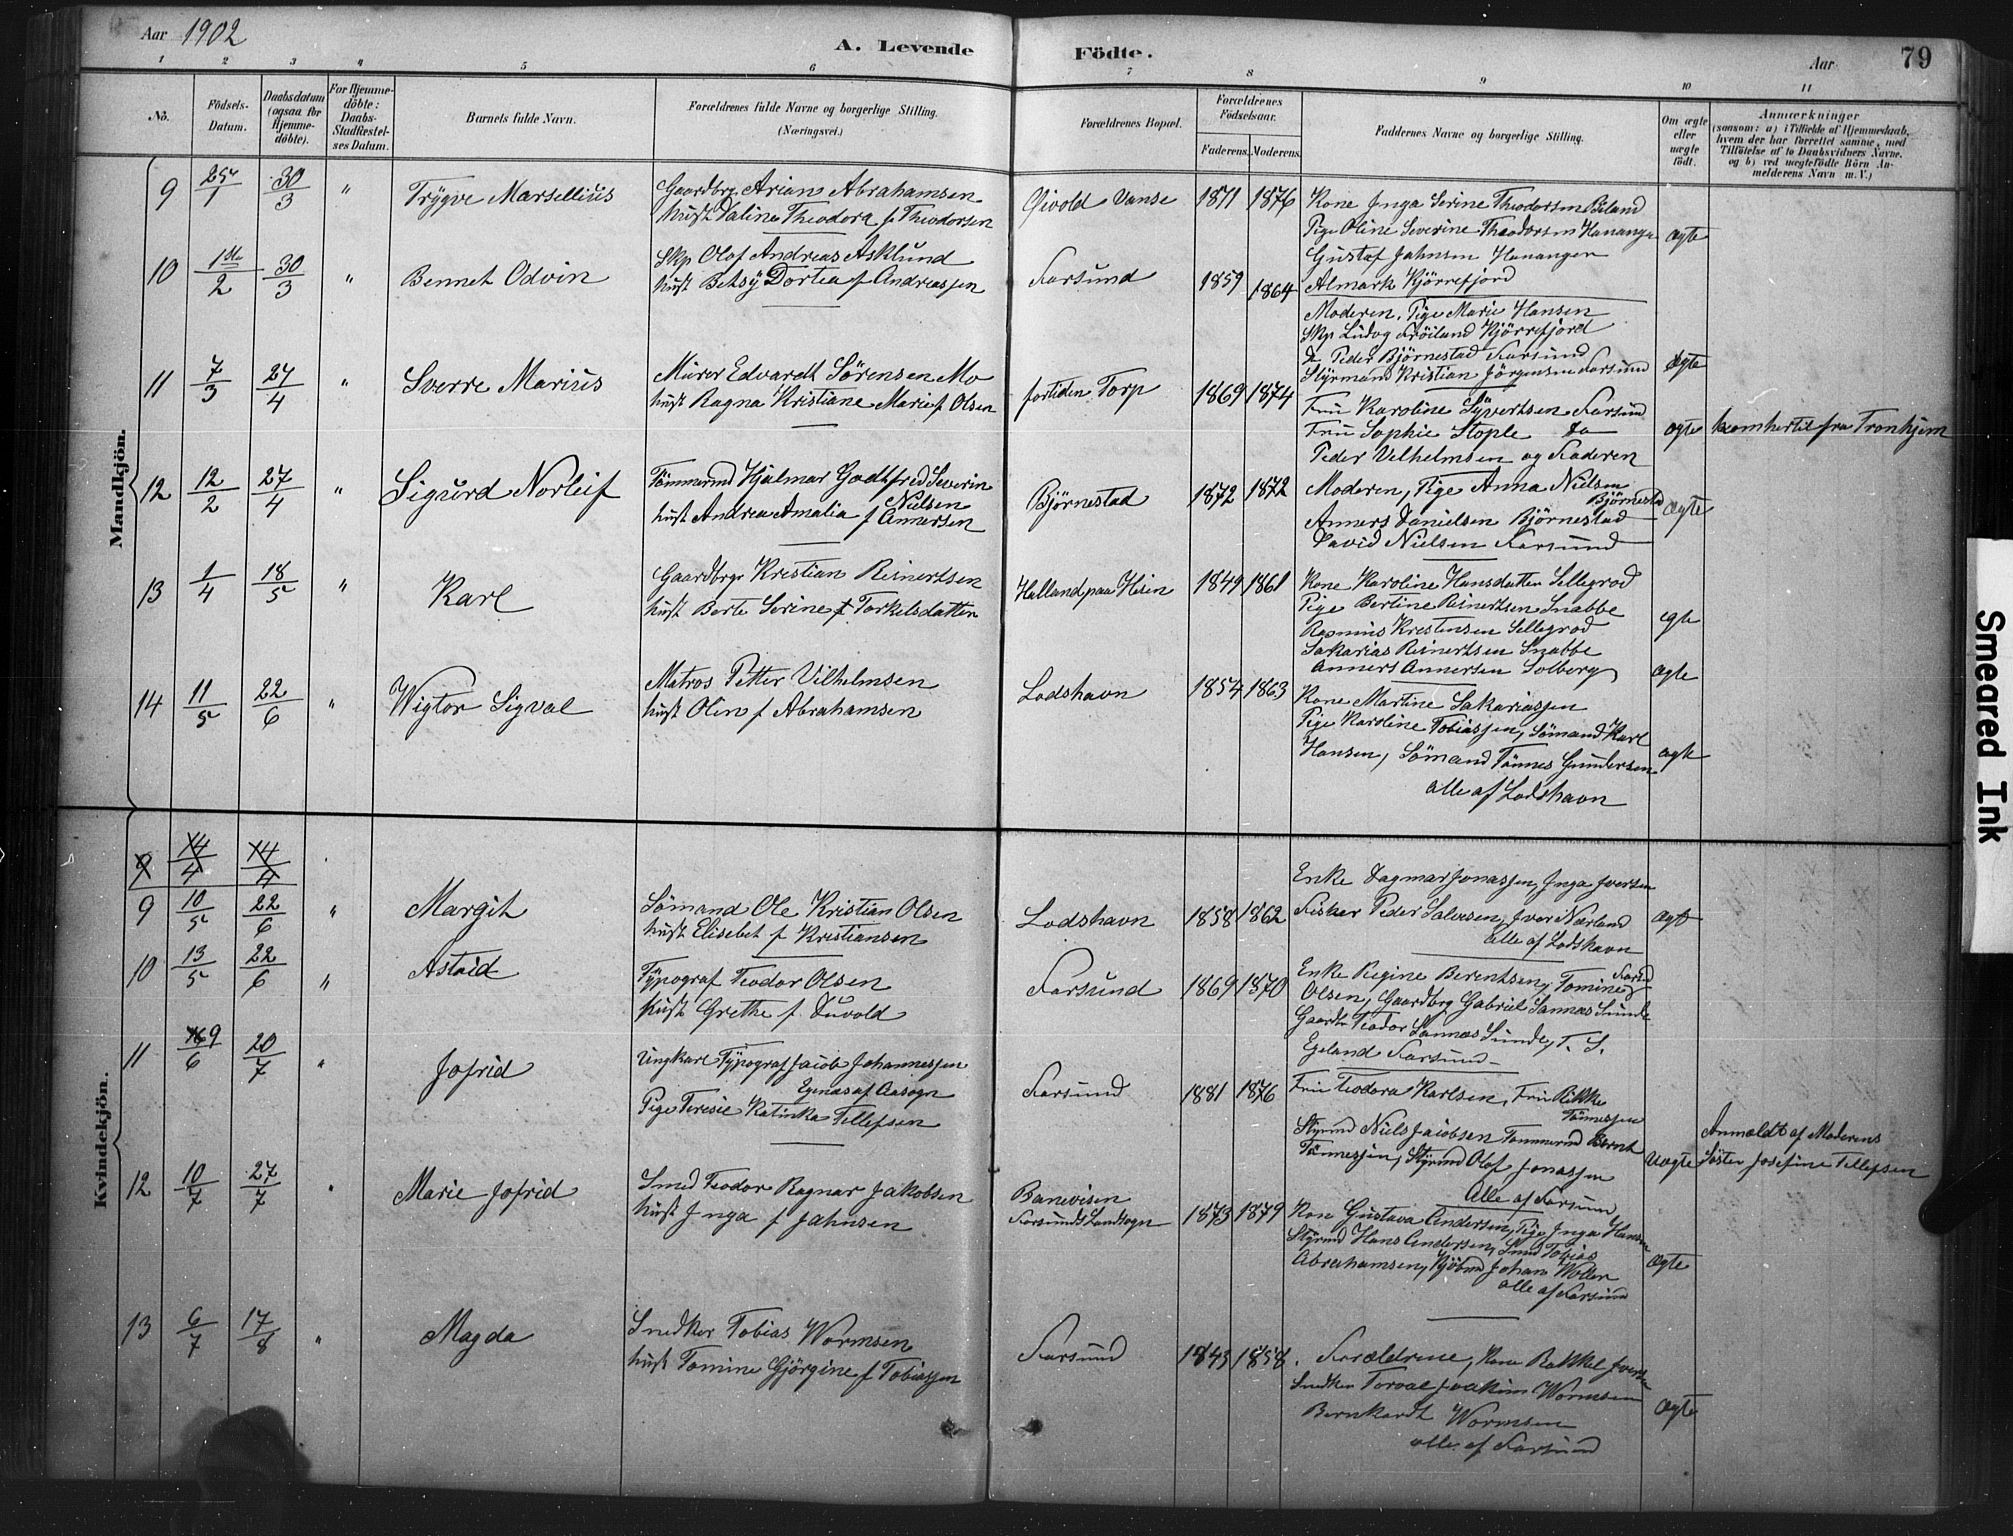 Aar 1902
A. Levende Födte.
Aar
79
1 2 3 4 5 6 7 8 9 10 11
No.
Födsels-Datum.
Daabsdatum (ogsaa for Hjemme-döbte).
For Hjemme-döbte: Daabs-Stadfæstel-ses Datum.
Barnets fulde Navn.
Forældrenes fulde Navne og borgerlige Stilling.
(Næringsvei.)
Forældrenes Bopæl.
Forældrenes Födselsaar.
Faderens. Moderens.
Faddernes Navne og borgerlige Stilling.
Om ægte eller uægte födt.
Anmærkninger
(saasom: a) i Tilfælde af Hjemmedaab, hvem der har forrettet samme, med Tilföielse af to Daabsvidners Navne, og b) ved uægtefödte Börn An-melderens Navn m. V.)
Mandkjön.
9 25/1 30/3 " Trygve Marsellius
Gaardbrg. Arian Abrahamsen
hust Valine Theodora f Theodorsen
Givold Vanse 1871 1876
Kone Inga Serine Theodorsen Biland
Pige Oline Severine Theodorsen Hanangr
Gustaf Jahnsen Hanangen
Almark Kjörrefjord
ægte
10 1ste/2 30/3 " Bennet Odvin
Skp Olof Andreas Asklund
hust Betsy Dortea f Andreassen
Farsund 1859 1864
Moderen, Pige Marie Hansen
Skp Ludvg Fröiland Kjörrefjord
do Peder Björnestad Farsund
Styrmand Kristian Jörgensen Farsund
Ægte
11 7/3 27/4 " Sverre Marius
Murer Edvardt Sörensen Mo
hust Ragna Kristiane Marie f Olsen
fortiden Torp 1869 1874
Fru Karoline Syvertsen Farsund
Fru Sophie Stople do
Peder Velhelmsen og Faderen
ægte
kom hertil fra Tronhjem
12 12/2 27/4 " Sigurd Norleif
Tömmermd Hjalmar Godtfred Severin Nilsen
hust Andrea Amalia f Annersen
Björnestad 1872 1872
Moderen, Pige Anna Nielsen Björnestad
Anners Danielsen Björnestad
David Nielsen Farsund
Ægte
13 1/4 18/5 " Karl
Gaardbrgr Kristian Reinertsen
hust Berte Serine f Torkelsdatter
Halland paa Hisen 1849 1861
Kone Karoline Hansdatter Sellegrod
Pige Bertine Reinertsen Snabbe
Rasmus Kristensen Sellegrod
Sakarias Reinertsen Snabbe
Anners Annersen Solberg
ægte
ægte
14 11/5 22/6 " Wigtor Sigval
Matros Petter Vilhelmsen
hust Olin f Abrahamsen
Lodshavn 1854 1863
Kone Martine Sakariassen
Pige Karoline Tobiassen, Sömand Karl
Hansen, Sömand Tönnes Gundersen
alle af Lodshavn
ægte
Kvindekjön.
9 14/4 14/4
9 10/5 22/6 " Margit
Sömand Ole Kristian Olsen
hust Elisebet f Kristiansen
Lodshavn 1858 1862
Enke Dagmar Jonassen, Inga Iversen
Fisker Peder Salvesen, Iver Nærland
alle af Lodshavn
ægte
10 13/5 22/6 " Astrid
Typograf Teodor Olsen
hust Grethe f. Duvold
Farsund 1869 1870
Enke Regine Berentsen, Tomine
Olsen, Gaardbrg Gabriel Sannæs Sunde
Gaardb Teodor Sannæs Sunde, T. S.
Egeland Farsund
11 9/6 20/7 " Jofrid
Ungkarl Typograf Jacob Johannessen
Egenæs af Aasogn
Pige Teresie Katinka Tellefsen
Farsund 1881 1876
Fru Teodora Karlsen, Fru Rikke
Tönnessen
Styrmd Niels Jacobsen Tömmermd Bernt
Tönnessen, Styrmd Olof Jonassen
Alle af Farsund
Uægte
Anmeldt af Moderens
Söster Josefine Tellefsen
12 10/7 27/7 " Marie Jofrid
Smed Teodor Ragnar Jakobsen
hust Inga f Jahnsen
Banevisen
Farsunds Landsogn 1873 1879
Kone Gustava Andersen, Pige Inga Hansen
Styrmd Hans Andersen, Smed Tobias
Abrahamsen, Kjöbm Johan Woller
alle af Farsund
Ægte
13 6/7 17/8 " Magda
Snedker Tobias Wormsen
hust Tomine Gjörgine f Tobiassen
Farsund 1843 1858
Forældrene, Kone Rakkel Iversen
Snedker Torval Joakim Wormsen
Bernhardt Wormsen
alle af Farsund
Ægte
Smeared Ink